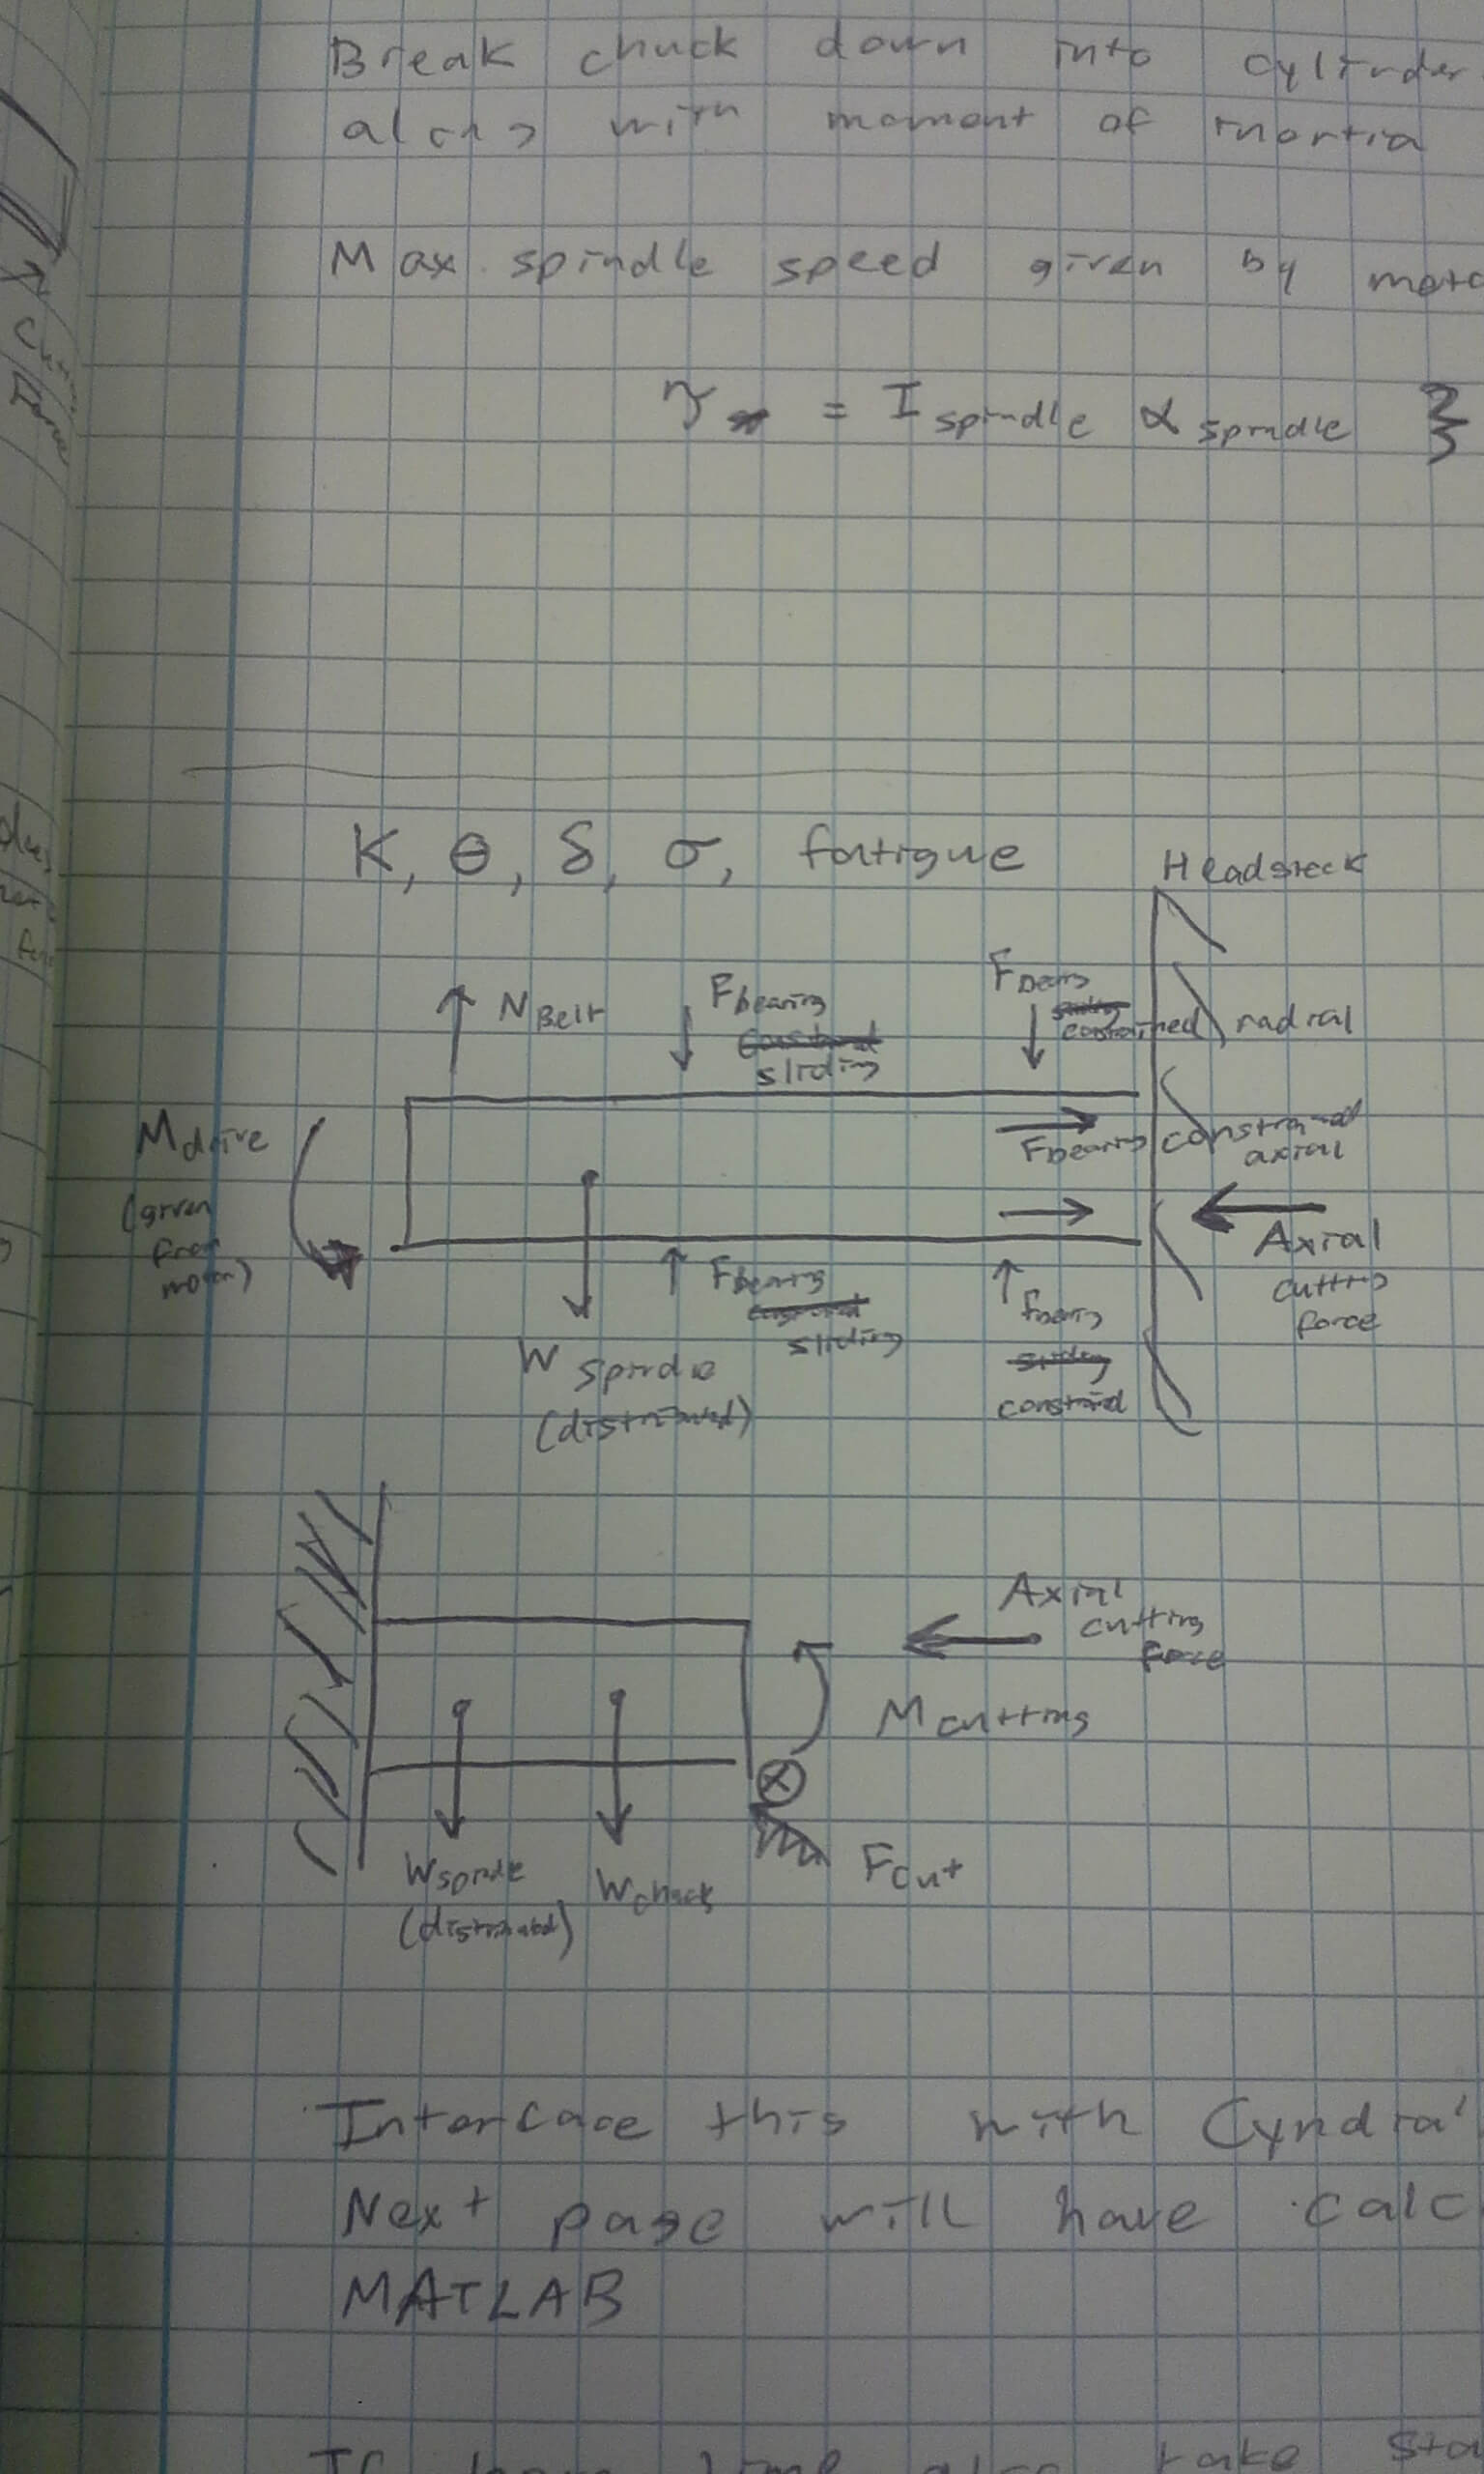 Break chuck down into cylinder
along with moment of inertia
Max spindle speed given by moto
τ = I spindle α spindle }
K, θ, δ, σ, fatigue
Headstock
N Belt
F bearing
sliding
F bearing
constrained radial
M drive
(given
from
motor)
F bearing constrained
axial
Axial
cutting
force
W spindle
(distributed)
F bearing
sliding
F bearing
constrained
Axial
cutting
force
M cutting
F cut
W spindle
(distributed)
W chuck
Interface this with Cyndia'
Next page will have calc
MATLAB
take sta
Force